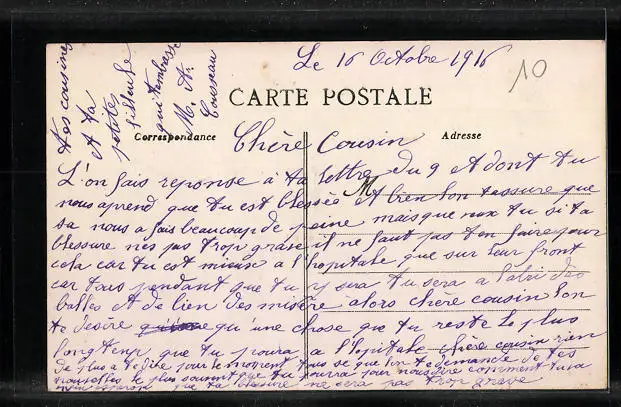 Le 16 Octobre 1916
10
CARTE POSTALE
Correspondance
Adresse
Chère Cousin
L'on fais reponse à ta lettre du 9 et dont tu
nous aprend que tu est blessée et bien l'on tassure que
sa nous a fais beaucoup de peine mais que veux tu si ta
blessure nes pas trop grave il ne faut pas ten faire pour
cela car tu est mieux a l'hopitale que sur leur front
car tous pendant que tu y sera tu sera a l'abri des
balles et de bien des misère alors chère cousin l'on
te desire qu'une chose que tu reste le plus
longtemp que tu poura a l'hopitale chère cousin rien
de plus a te dire pour le moment tus se que l'on te demande de tes
nouvelles le plus souvent que tu pourra pour nous dire comment tu va
que ta blessure ne sera pas trop grave
tes cousines
et ta
petites
filleule
qui tembrasse
M. A.
Cousseau